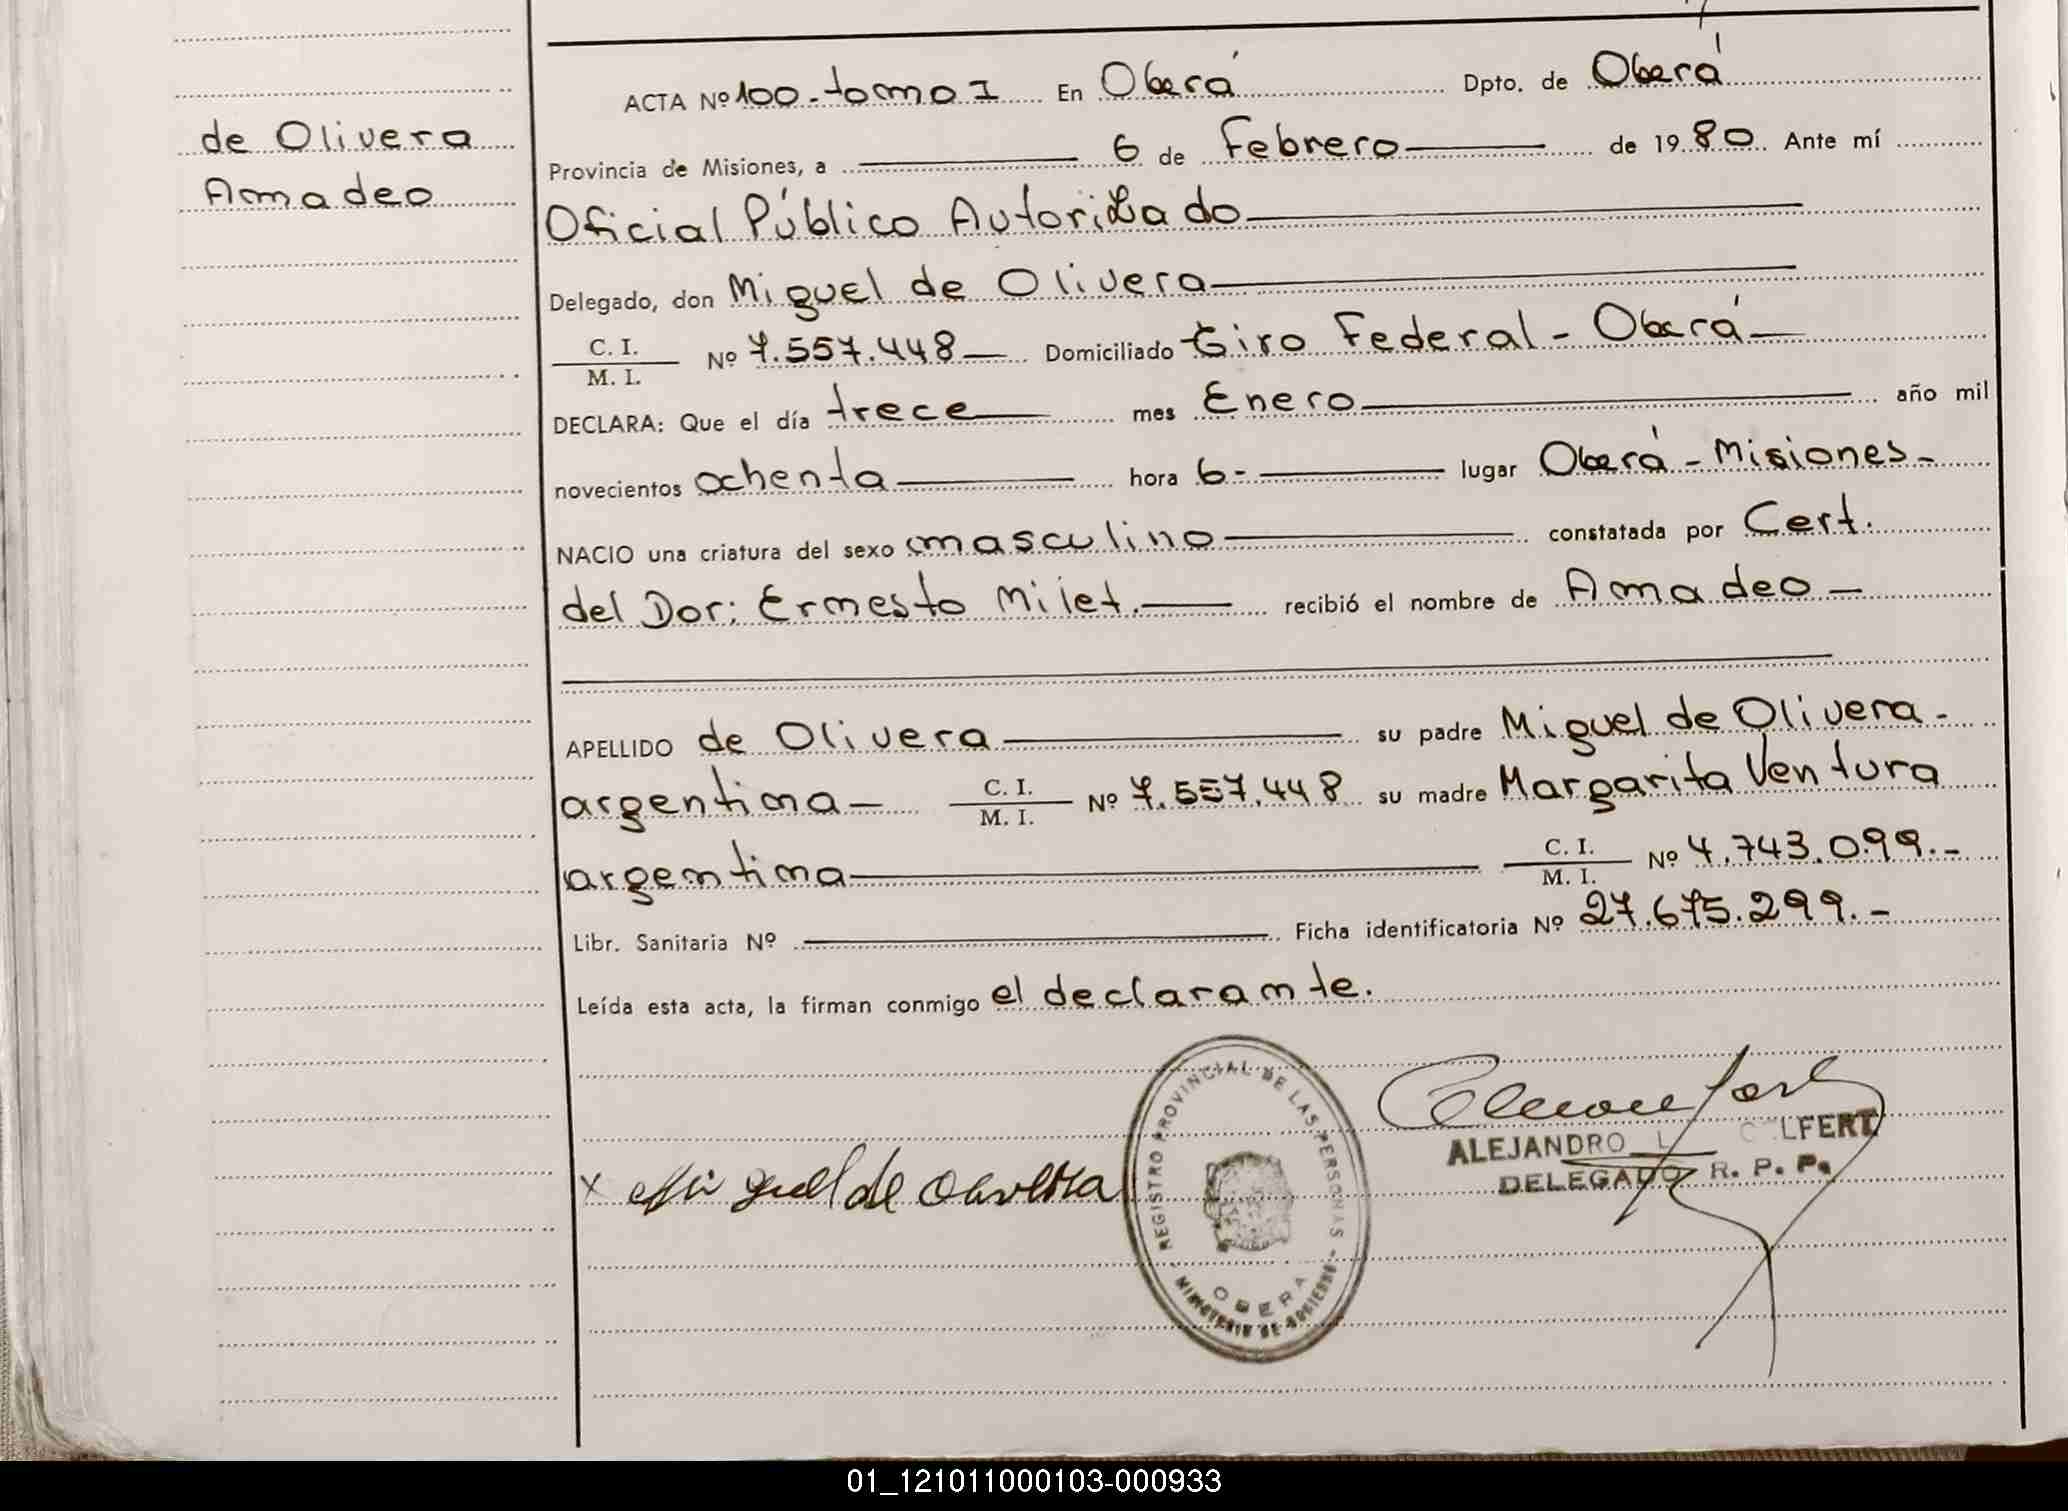 de Olivera
Amadeo
ACTA Nº 100 - tomo I En Oberá Dpto. de Oberá
Provincia de Misiones, a 6 de Febrero de 1980 Ante mí
Oficial Público Autorizado
Delegado, don Miguel de Olivera
C. I.
M. I. Nº 7.557.448 Domiciliado Giro Federal - Oberá
DECLARA: Que el día trece mes Enero año mil
novecientos ochenta hora 6- lugar Oberá - Misiones -
NACIO una criatura del sexo masculino constatada por Cert.
del Dor: Ernesto Milet. recibió el nombre de Amadeo
APELLIDO de Olivera su padre Miguel de Olivera -
argentina C. I.
M. I. Nº 7.557.448 su madre Margarita Ventura
argentina C. I.
M. I. Nº 4.743.099.-
Libr. Sanitaria Nº Ficha identificatoria Nº 27.675.299.-
Leída esta acta, la firman conmigo el declarante.
x Miguel de Olivera
REGISTRO PROVINCIAL DE LAS PERSONAS - MINISTERIO DE GOBIERNO
OBERA
ALEJANDRO
DELEGADO R. P. P.
01_121011000103-000933